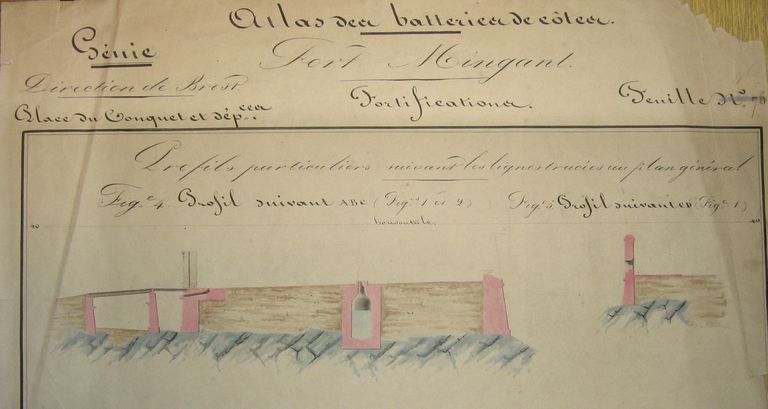 Atlas des batteries de côtes.
Génie
Fort Mingant.
Direction de Brest.
Fortifications.
Feuille N.º
Place du Conquet et dép.ces
Profils particuliers suivant les lignes tracées au plan général.
Fig.e 4. Profil suivant ABC (Fig.es 1 et 2)
Fig.e 5. Profil suivant (Fig.e 1)
horizontale